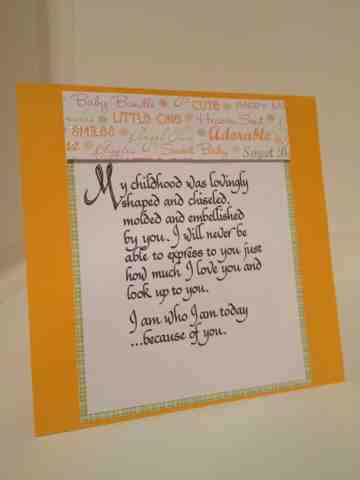 Baby Bundle CUTE
LITTLE ONE Heaven Sent
SMILES Angel Adorable
Giggles Sweet Baby Sweet B
My childhood was lovingly
shaped and chiseled,
molded and embellished
by you. I will never be
able to express to you just
how much I love you and
look up to you.
I am who I am today
...because of you.